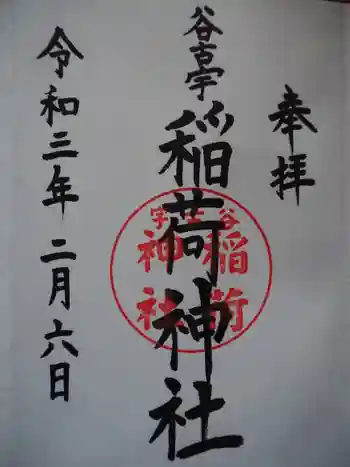 奉拝
谷古宇
稲荷神社
谷古宇
稲荷
神社
令和三年二月六日